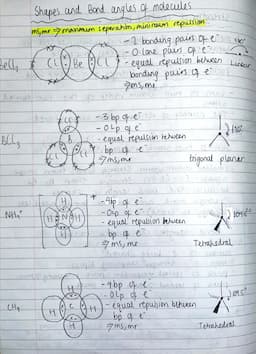 Shapes and Bond angles of molecules
ms,mr => maximum separation, minimum repulsion
BeCl2
Cl Be Cl
- 2 bonding pairs of e-
- 0 lone pairs of e-
- equal repulsion between
bonding pairs of e-
=> ms,mr
Linear
BCl3
Cl
B
Cl Cl
- 3 bp of e-
- 0 lp of e-
- equal repulsion between
bp of e-
=> ms,mr
120°
trigonal planar
NH4+
H
H N H
H
+
- 4bp of e-
- 0lp of e-
- equal repulsion between
bp of e-
=> ms,mr
109.5°
Tetrahedral
CH4
H
H C H
H
- 4 bp of e-
- 0 lp of e-
- equal repulsion between
bp of e-
=> ms,mr
109.5°
Tetrahedral